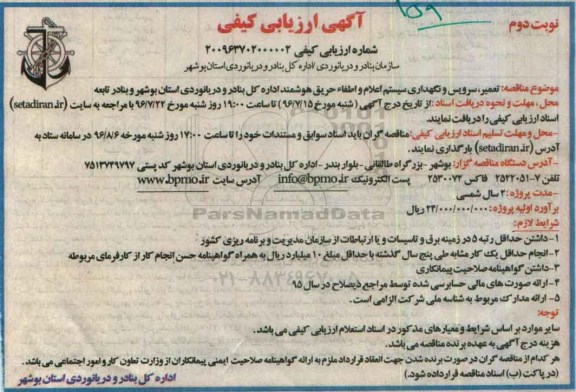 نوبت دوم
آگهی ارزیابی کیفی
شماره ارزیابی کیفی ۲۰۰۹۶۳۷۰۲۰۰۰۰۰۲
سازمان بنادر و دریانوردی /اداره کل بنادر و دریانوردی استان بوشهر
موضوع مناقصه: تعمیر، سرویس و نگهداری سیستم اعلام و اطفاء حریق هوشمند اداره کل بنادر و دریانوردی استان بوشهر و بنادر تابعه
محل ، مهلت و نحوه دریافت اسناد :از تاریخ درج آگهی (شنبه مورخ ۹۶/۷/۱۵) تا ساعت ۱۹:۰۰ روز شنبه مورخ ۹۶/۷/۲۲ با مراجعه به سایت (setadiran.ir)
اسناد ارزیابی کیفی را دریافت نمایند.
-محل و مهلت تسلیم اسناد ارزیابی کیفی:مناقصه گران باید اسناد سوابق و مستندات خود را تا ساعت ۱۷:۰۰ روز شنبه مورخه ۹۶/۸/۶ در سامانه ستاد به
آدرس (setadiran.ir) بارگذاری نمایند.
-آدرس دستگاه مناقصه گزار: بوشهر -بزرگراه طالقانی - بلوار بندر -اداره کل بنادر و دریانوردی استان بوشهر کد پستی ۷۵۱۳۷۴۹۷۹۷
تلفن ۷-۲۵۳۲۰۵۱ فاکس ۲۵۳۰۰۷۲ پست الکترونیک info@bpmo.ir آدرس سایت www.bpmo.ir
-مدت پروژه: ۲ سال شمسی
برآورد اولیه پروژه: ۲۴/۰۰۰/۰۰۰/۰۰۰ ریال
شرایط لازم:
۱-داشتن حداقل رتبه ۵ در زمینه برق و تاسیسات و یا ارتباطات از سازمان مدیریت و برنامه ریزی کشور
۲- انجام حداقل یک کار مشابه طی پنج سال گذشته با حداقل مبلغ ۱۰ میلیارد ریال به همراه گواهینامه حسن انجام کار از کارفرمای مربوطه
۳-داشتن گواهینامه صلاحیت پیمانکاری
۴- ارائه صورت های مالی حسابرسی شده توسط مراجع ذیصلاح در سال ۹۵
۵- ارائه مدارک مربوط به شناسه ملی شرکت الزامی است.
توجه:
سایر موارد بر اساس شرایط و معیارهای مذکور در اسناد استعلام ارزیابی کیفی می باشد.
هزینه درج آگهی به عهده برنده مناقصه می باشد.
هر کدام از مناقصه گران در صورت برنده شدن جهت انعقاد قرارداد ملزم به ارائه گواهینامه صلاحیت ایمنی پیمانکاران از وزارت تعاون کار و امور اجتماعی می باشد.
(در پاکت (ب) اسناد مناقصه قرارداده شود.)
اداره کل بنادر و دریانوردی استان بوشهر
ParsNamadData
۰۲۱-۸۸۳۴۹۶۷۰